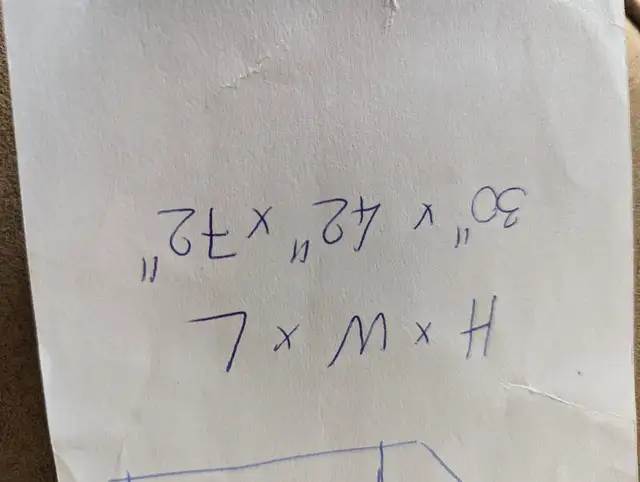 H x W x L
30" x 42" x 72"